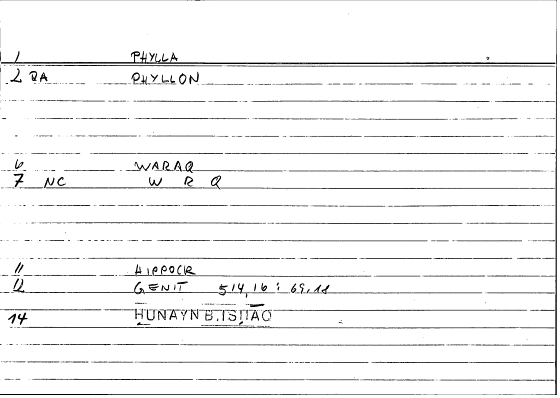 1 PHYLLA
2 RA PHYLLON
6 WARAQ
7 NC W R Q
11 HIPPOCR
12 GENIT 514,16 : 69.18
14 HUNAYN B.ISḤAQ